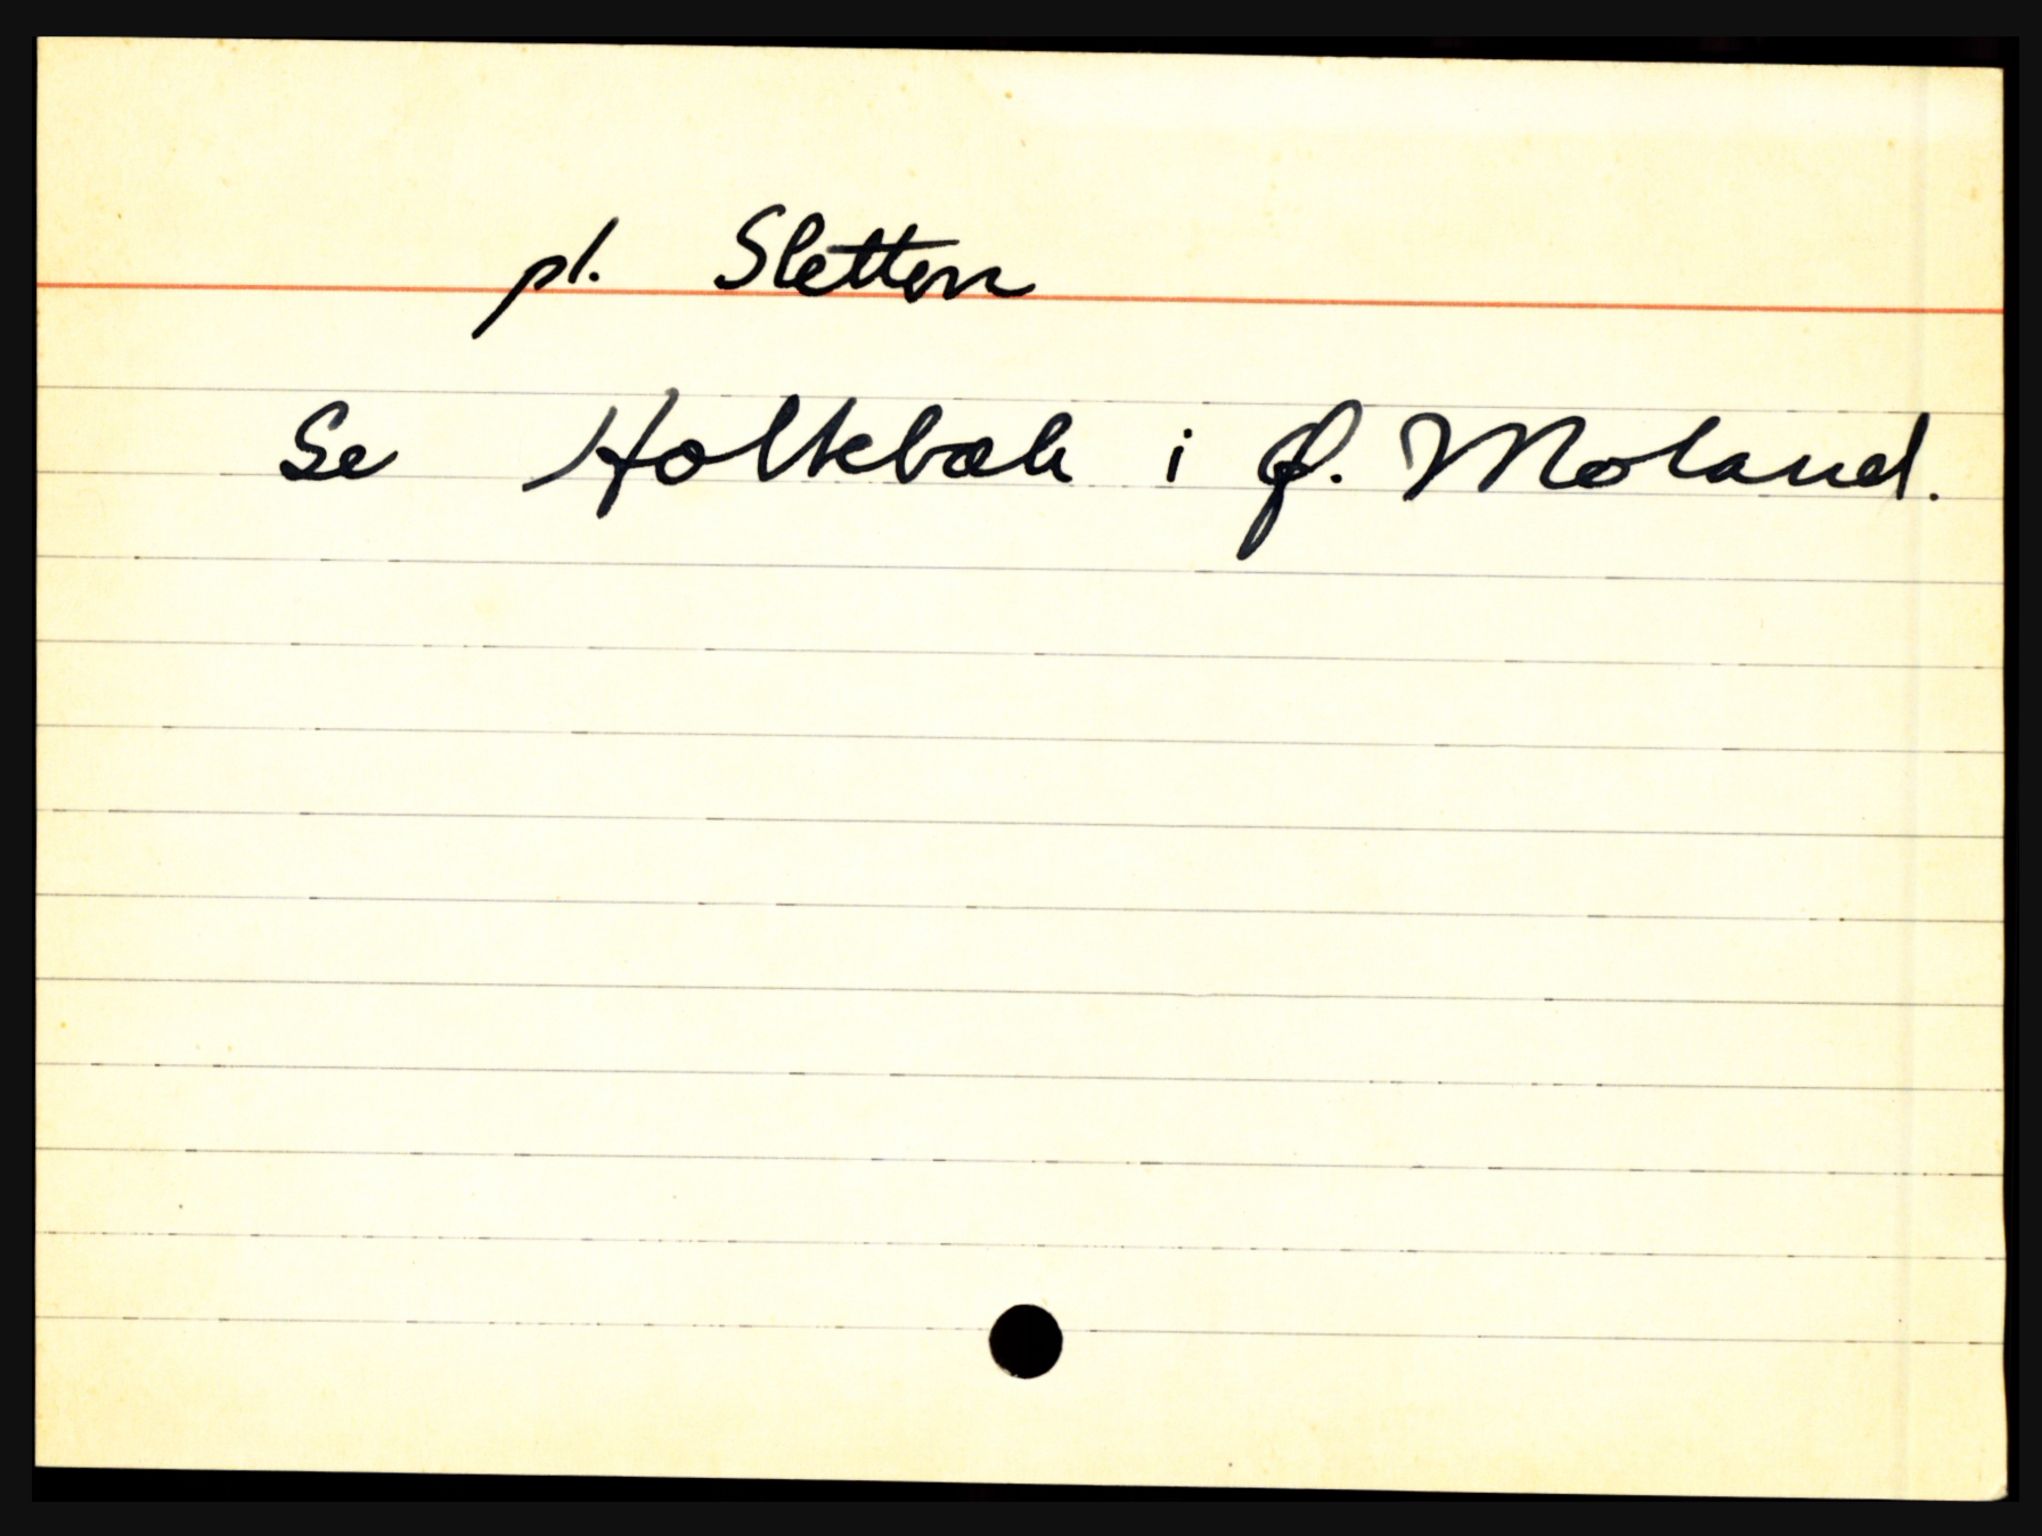 pl. Sletten
Se Holtebæk i Ø. Moland.